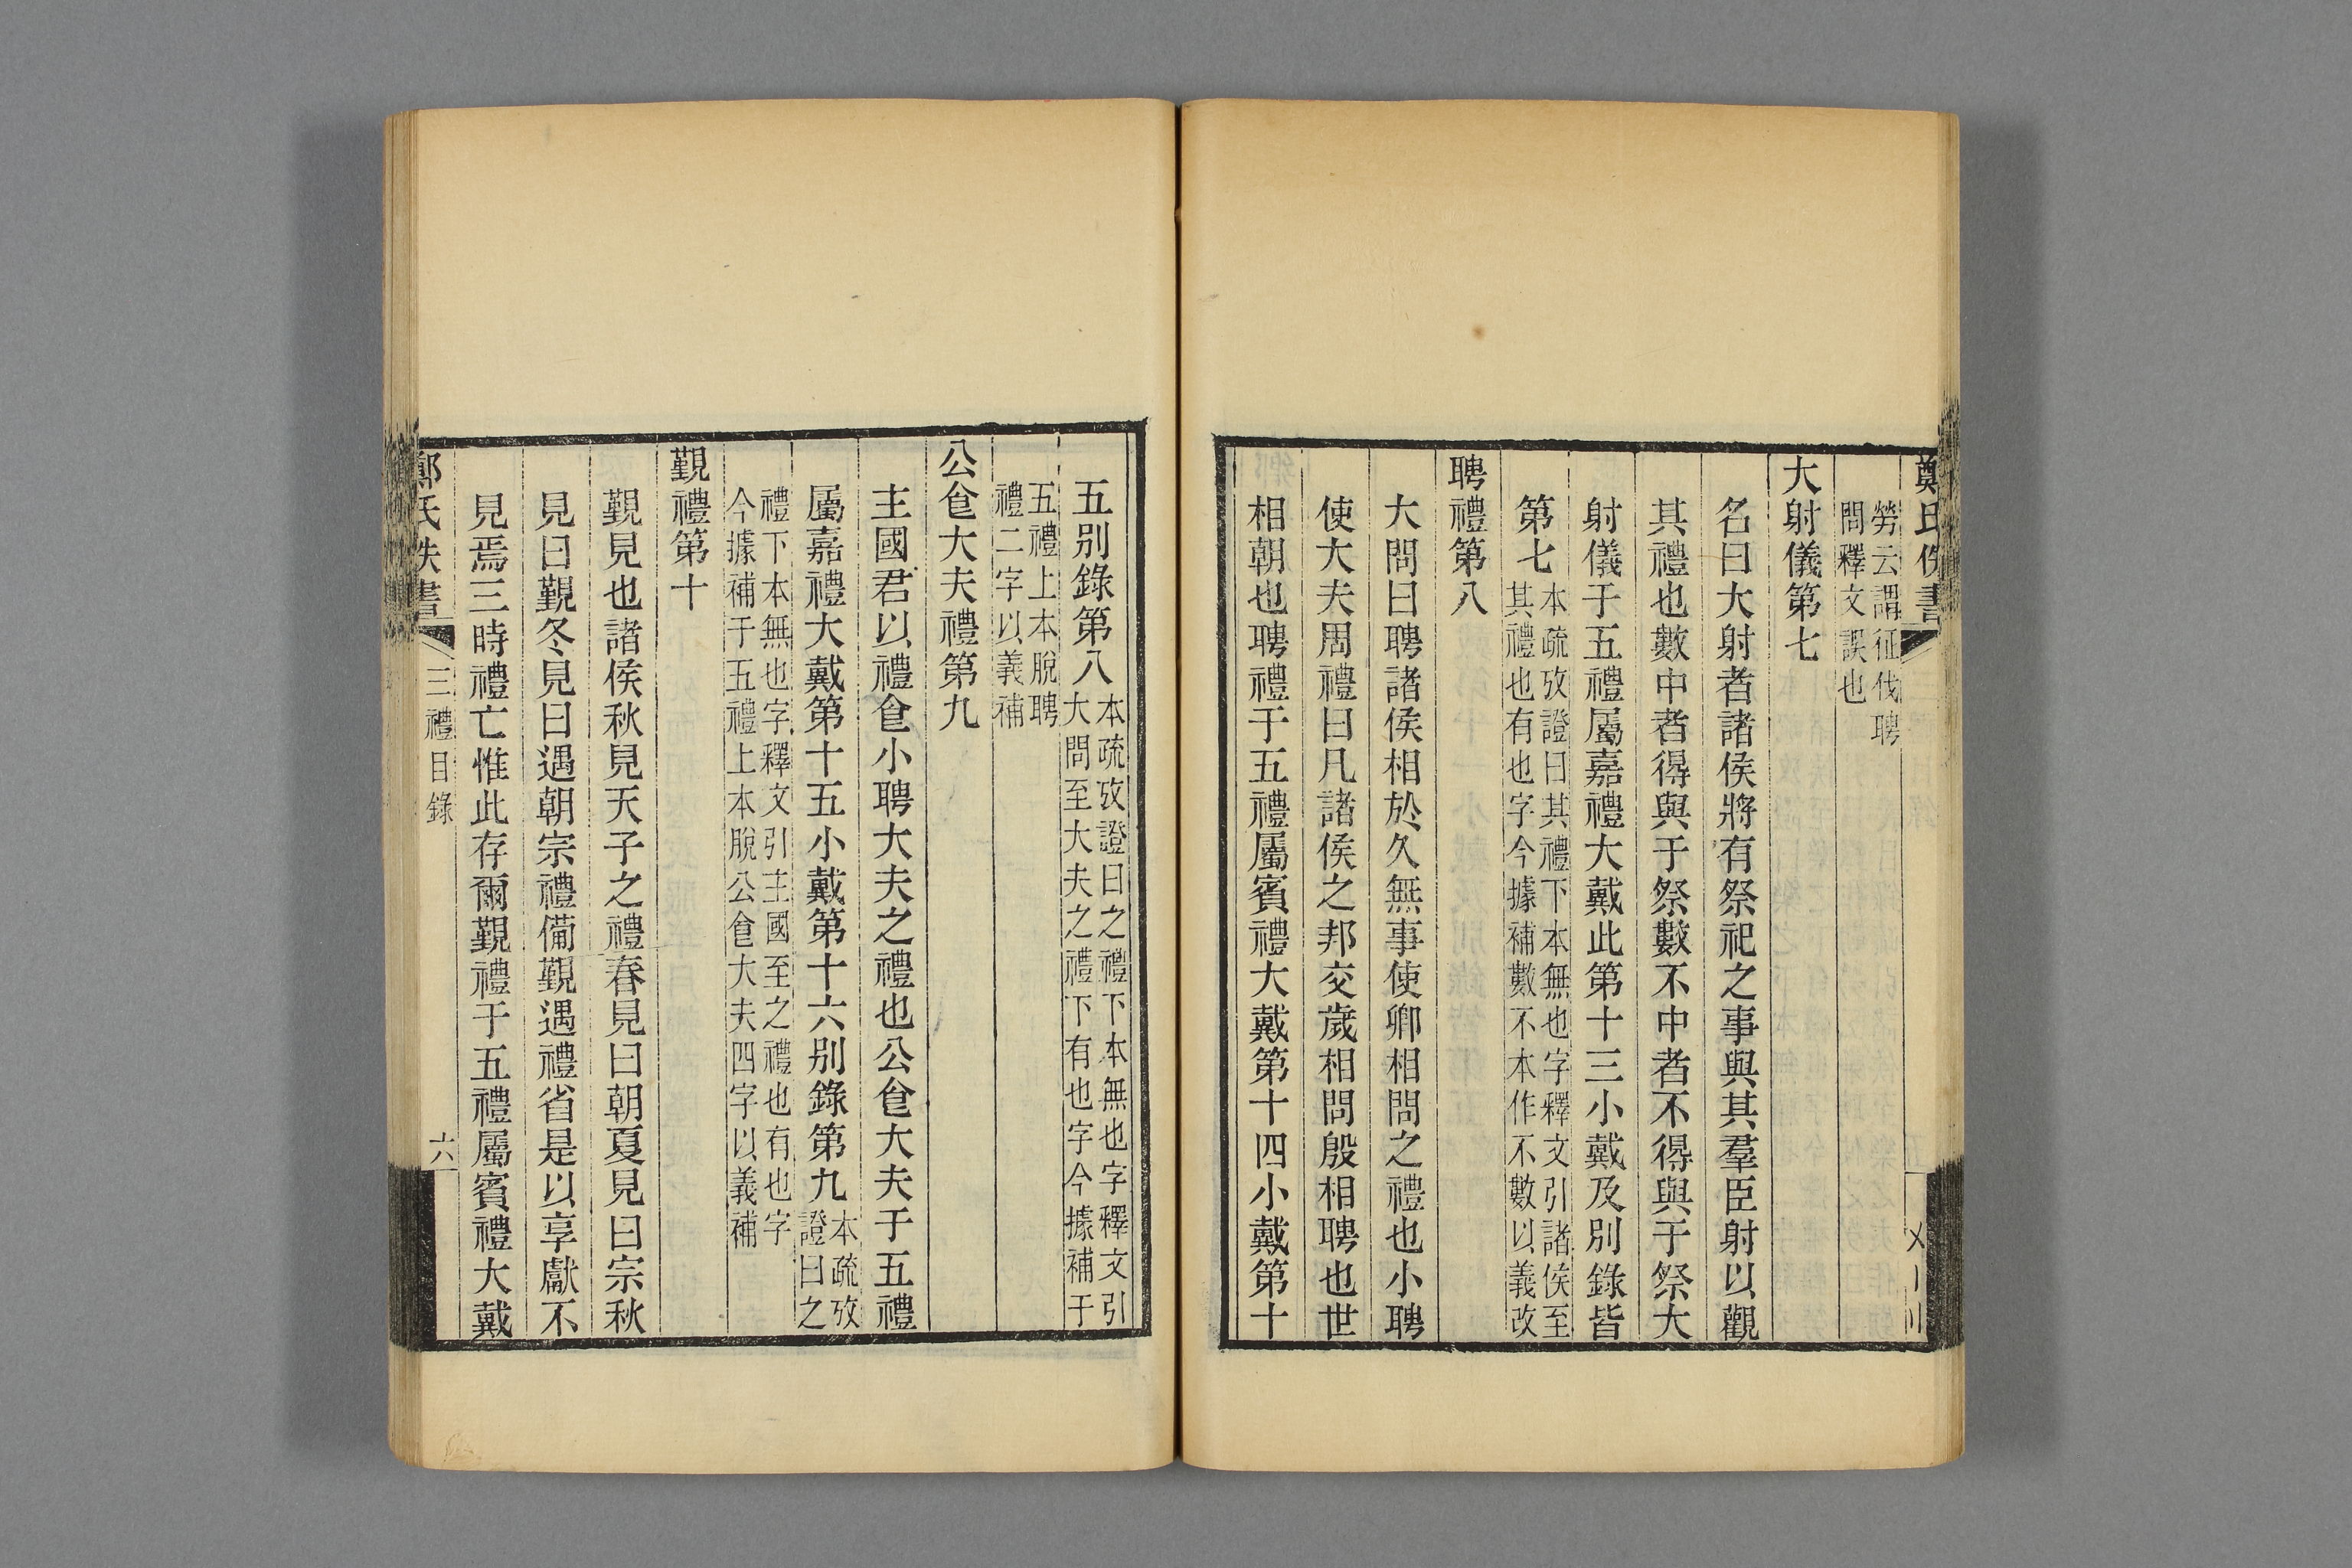 勞云謂征伐聘
問釋文誤也
大射儀第七
名曰大射者諸侯將有祭祀之事與其羣臣射以觀
其禮也數中者得與于祭數不中者不得與于祭大
射儀于五禮屬嘉禮大戴此第十三小戴及別錄皆
第七本疏攷證曰其禮下本無也字釋文引諸侯至
其禮也有也字今據補數不本作不數以義改
聘禮第八
大問曰聘諸侯相於久無事使卿相問之禮也小聘
使大夫周禮曰凡諸侯之邦交歲相問殷相聘也世
相朝也聘禮于五禮屬賓禮大戴第十四小戴第十
五別錄第八本疏攷證曰之禮下本無也字釋文引
大問至大夫之禮下有也字今據補于
五禮上本脫聘
禮二字以義補
公飠大夫禮第九
主國君以禮飠小聘大夫之禮也公飠大夫于五禮
屬嘉禮大戴第十五小戴第十六別錄第九本疏攷
證曰之
禮下本無也字釋文引主國至之禮也有也字
今據補于五禮上本脫公飠大夫四字以義補
覲禮第十
覲見也諸侯秋見天子之禮春見曰朝夏見曰宗秋
見曰覲冬見曰遇朝宗禮備覲遇禮省是以享獻不
見焉三時禮亡惟此存爾覲禮于五禮屬賓禮大戴
鄭氏佚書
三禮目錄
六